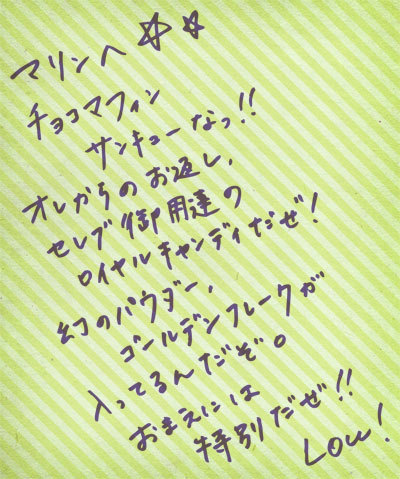 マリンへ☆☆
チョコマフィン
サンキューなっ!!
オレからのお返し、
セレブ御用達の
ロイヤルキャンディだぜ!
幻のパウダー、
ゴールデンフレークが
入ってるんだぞ。
おまえには
特別だぜ!!
Lou!